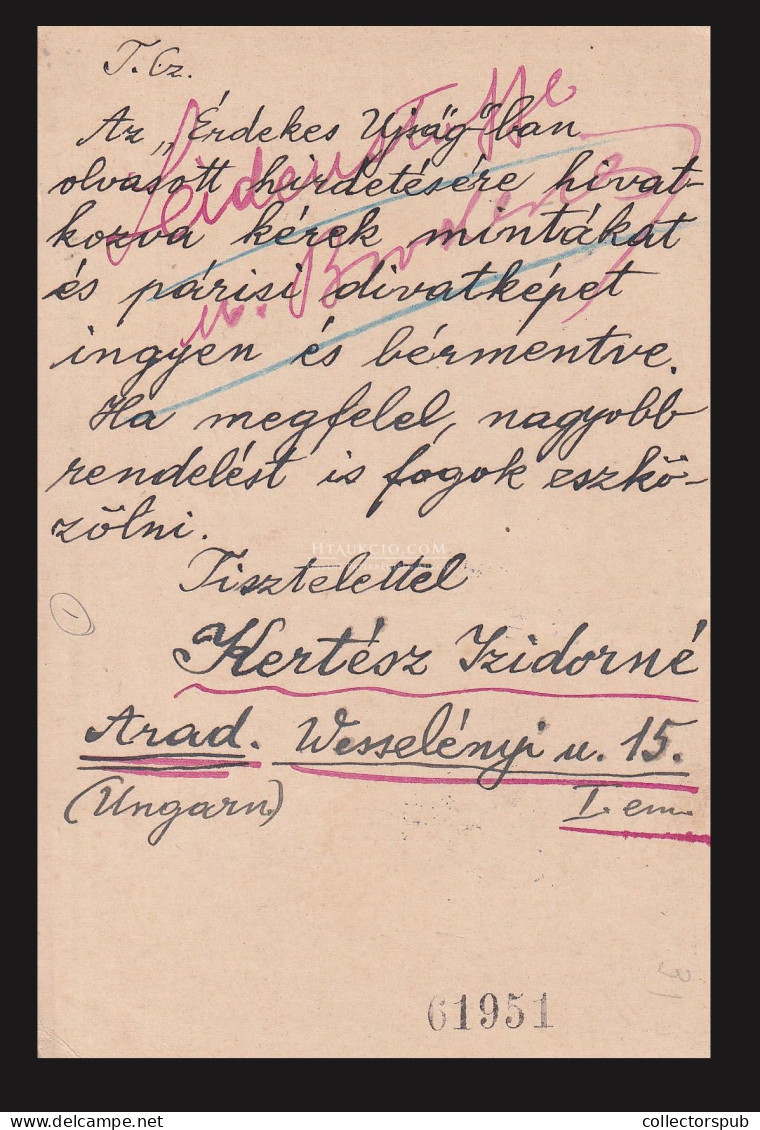 T. Cz.
Az „Érdekes Ujság"-ban
olvasott hirdetésére hivat-
kozva kérek mintákat
és párisi divatképet
ingyen és bérmentve.
Ha megfelel, nagyobb
rendelést is fogok eszkö-
zölni.
Tisztelettel
Kertész Izidorné
Arad. Wesselényi u. 15.
(Ungarn.) I. em.
Seidenstoffe
u.
HTAUKCIO.COM
1
61951
collectorspub